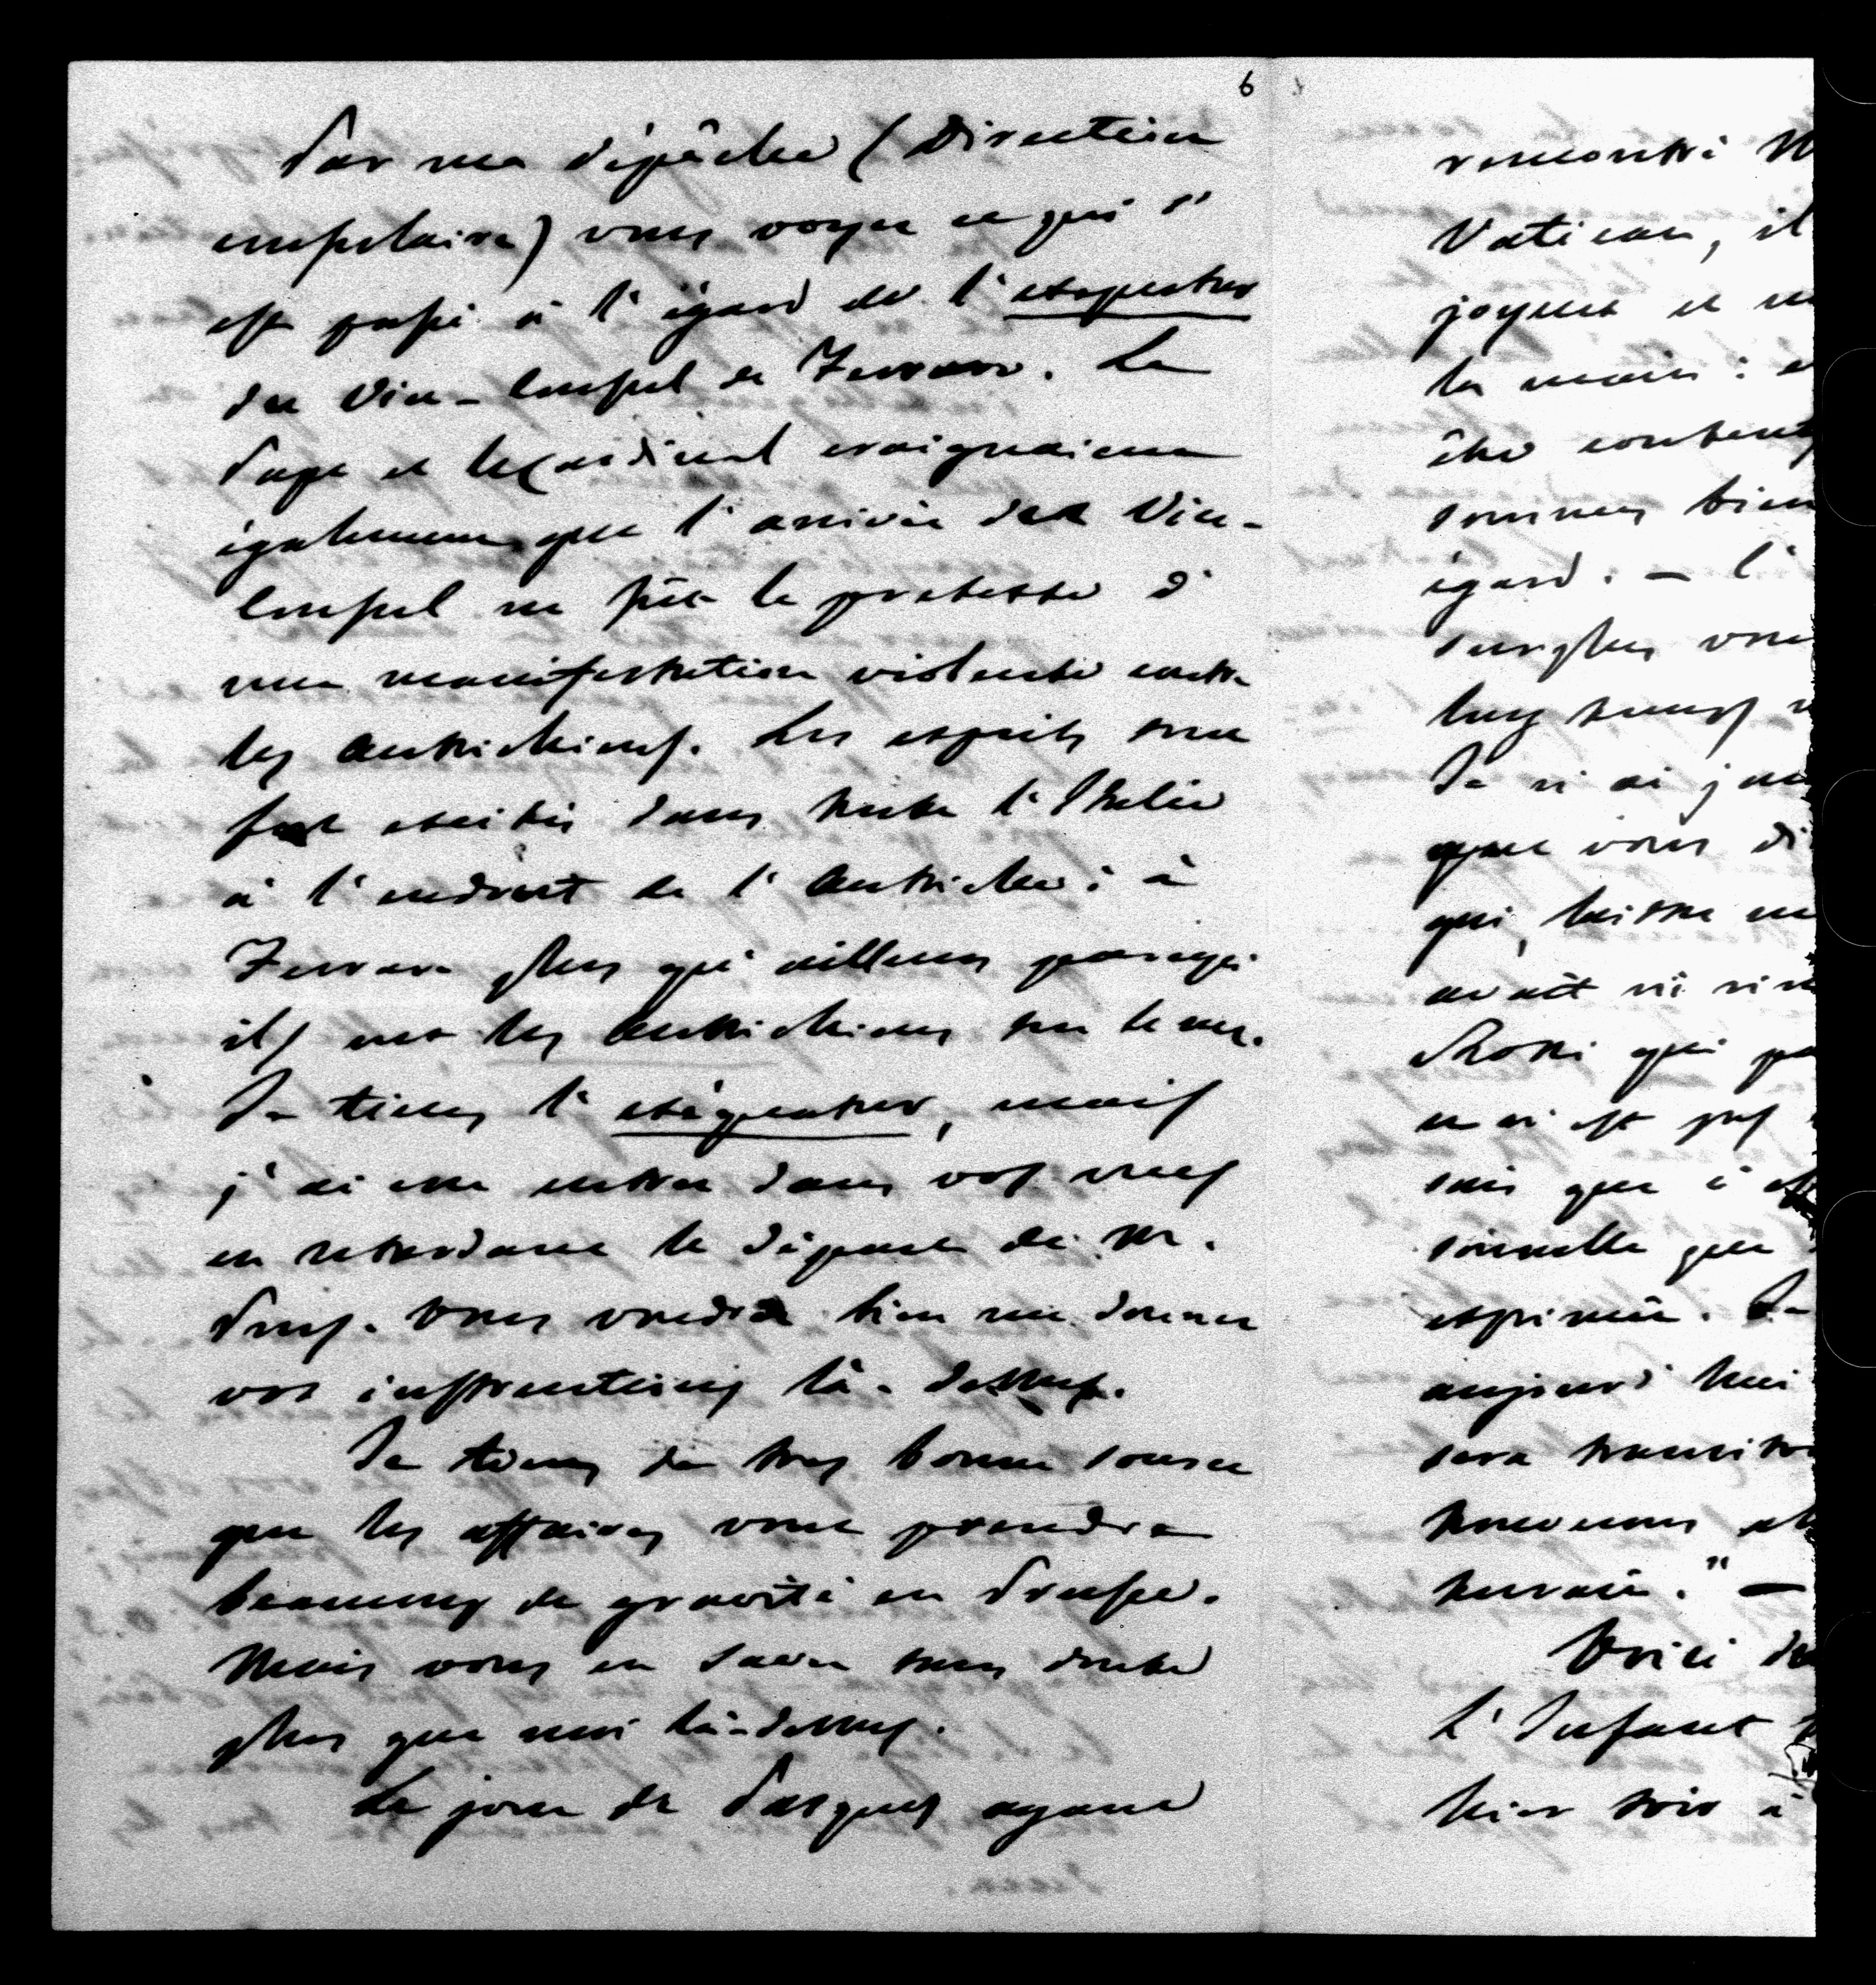 6
Par ma dépêche (Direction
consulaire) vous voyez ce qui s'
est passé à l'égard de l'exequatur
du Vice-Consul de Ferrare. Le
Pape et le Cardinal craignaient
également que l'arrivée du Vice-
Consul ne fût le prétexte d'
une manifestation violente contre
les Autrichiens. Les esprits sont
fort excités dans toute l'Italie
à l'endroit de l'Autriche; à
Ferrare plus qu'ailleurs parce qu'
ils ont les Autrichiens sur le nez.
Je tiens l'exéquatur, mais
j'ai cru entrer dans vos vues
en retardant le départ de M.
Vous voudrez bien me donner
vos instructions là-dessus.
Je tiens de très bonne source
que les affaires vont prendre
beaucoup de gravité en Prusse.
Mais vous en savez sans doute
plus que moi là-dessus.
Le jour de Pasques ayant
rencontré M
Vatican, il
joyeux et
la main:
être content
sommes bien
égard. — l'
surplus vous
long temps
Je n'ai jam
que vous di
qui, laisse
avait
Rossi qui
ce n'est pas
sais que c'
sonnelle que
exprimée. Je
aujourd'hui
sera transi
nouveaux
". —
Voici
L'Infant
hier soir à